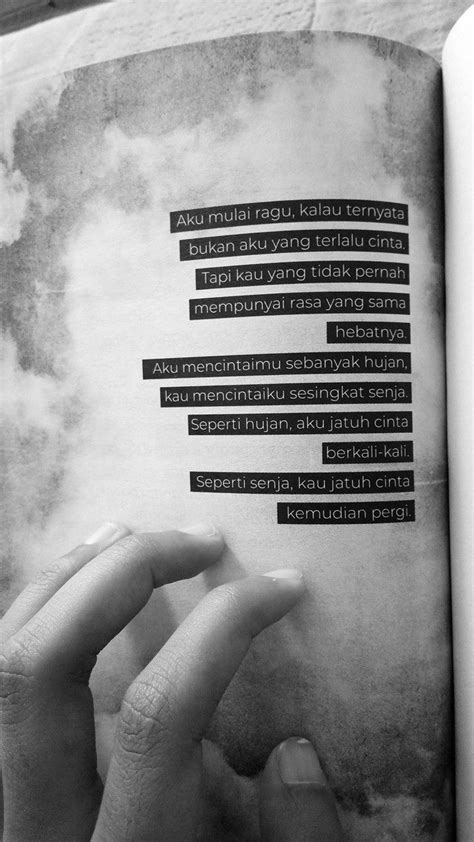 Aku mulai ragu, kalau ternyata
bukan aku yang terlalu cinta.
Tapi kau yang tidak pernah
mempunyai rasa yang sama
hebatnya.
Aku mencintaimu sebanyak hujan,
kau mencintaiku sesingkat senja.
Seperti hujan, aku jatuh cinta
berkali-kali.
Seperti senja, kau jatuh cinta
kemudian pergi.